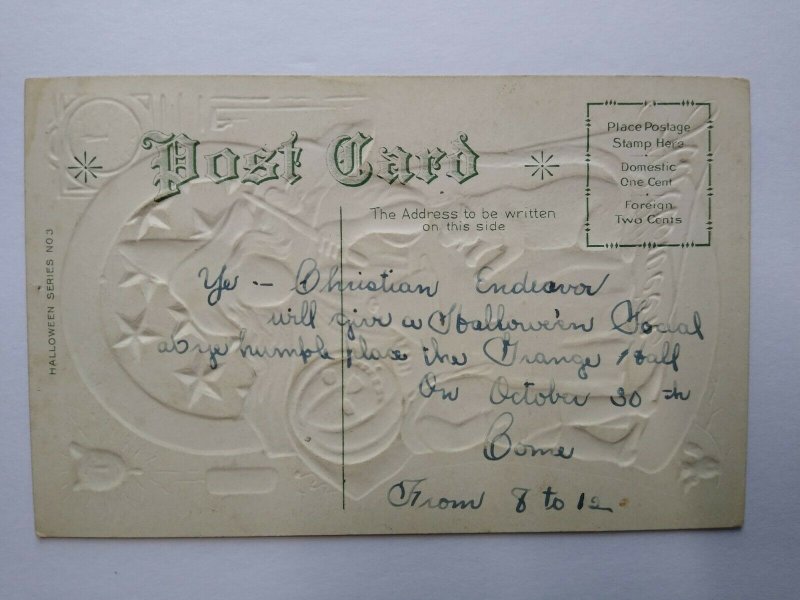 Post Card
Place Postage
Stamp Here
Domestic
One Cent
Foreign
Two Cents
The Address to be written
on this side
HALLOWEEN SERIES NO 3
Ye -- Christian Endeavor
will give a Halloween Social
at ye humple place the Grange Hall
On October 30-th
Come
From 8 to 12